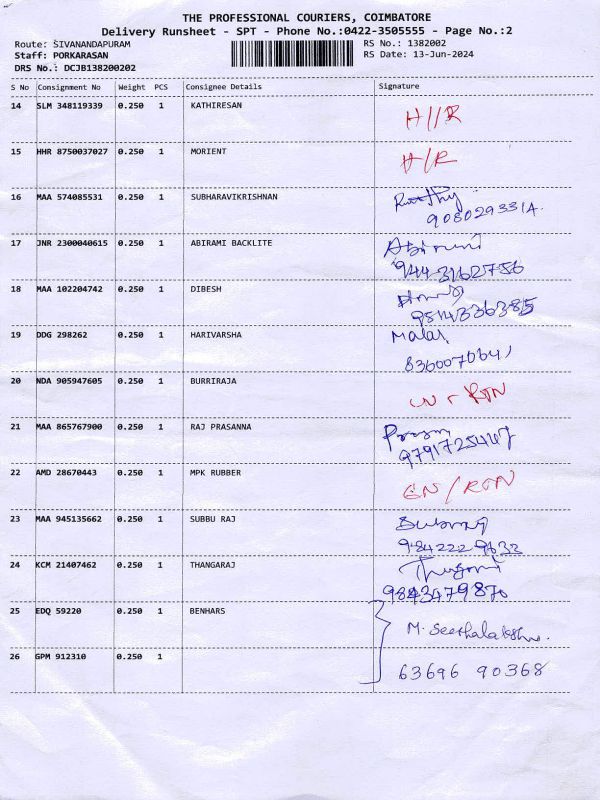 THE PROFESSIONAL COURIERS, COIMBATORE
Delivery Runsheet - SPT - Phone No.:0422-3505555 - Page No.:2
Route: SIVANANDAPURAM RS No.: 1382002
Staff: PORKARASAN RS Date: 13-Jun-2024
DRS No.: DCJB138200202
S No Consignment No Weight PCS Consignee Details Signature
14 SLM 348119339 0.250 1 KATHIRESAN H//R
15 HHR 8750037027 0.250 1 MORIENT H/R
16 MAA 574085531 0.250 1 SUBHARAVIKRISHNAN
17 JNR 2300040615 0.250 1 ABIRAMI BACKLITE Abirami
9443162756
18 MAA 102204742 0.250 1 DIBESH
9514336385
19 DDG 298262 0.250 1 HARIVARSHA Malar
20 NDA 905947605 0.250 1 BURRIRAJA
21 MAA 865767900 0.250 1 RAJ PRASANNA
22 AMD 28670443 0.250 1 MPK RUBBER
23 MAA 945135662 0.250 1 SUBBU RAJ
24 KCM 21407462 0.250 1 THANGARAJ
9843479870
25 EDQ 59220 0.250 1 BENHARS M. Seethalakshmi.
26 GPM 912310 0.250 1 63696 90368